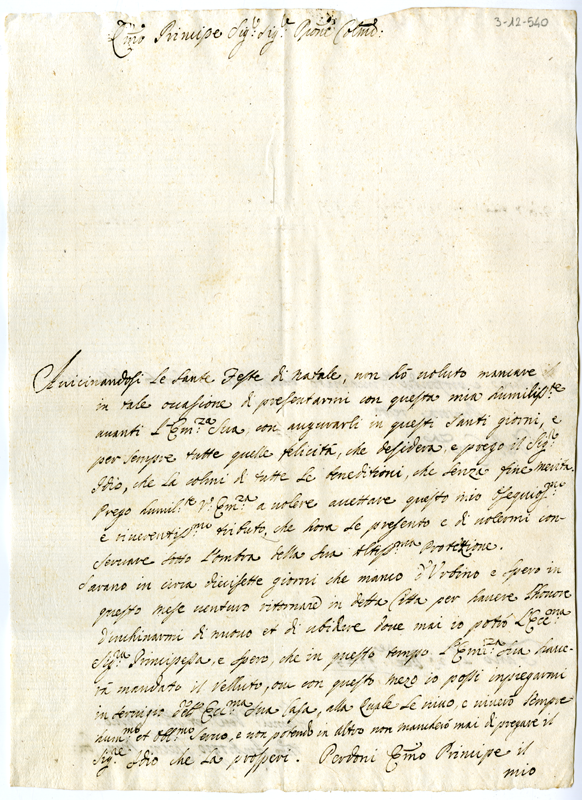 3-12-540
Em̃o Principe Sig.r Sig.r Pron̄e Colmo:
Avicinandosi le Sante Feste di Natale, non hò voluto mancare
in tale occasione di presentarmi con questa mia humiliss.te
avanti l'Em.za Sua, con augurarli in questi Santi giorni, e
per sempre tutte quelle felicità, che desidera, e prego il Sig.re
Idio, che la colmi di tutte le beneditioni, che senza fine merita.
Prego humil.te V.a Em.za a volere accettare questo mio ossequios.mo
e riverentiss.mo tributo, che hora le presento e di volermi con-
servare sotto l'ombra della sua Altiss.ma Protetione.
Sarano in circa diecisette giorni che manco d'Urbino e spero in
questo mese venturo ritornarò in detta Citta per havere l'honore
d'inchinarmi di nuovo et di ubidire dove mai io potrò l'Ecc.ma
Sig.ra Principessa, e spero, che in questo tempo l'Em.za Sua have-
rà mandato il velluto, ou con questo mezo io possi inpiegarmi
in servigio dell' Ecc.ma Sua Casa, alla quale le vivo, e viverò sempre
hum.mo et obb.mo servo, e non potendo in altro non mancherò mai di pregare il
Sig.re Idio che la prosperi. Perdoni Em̃o Principe il
mio